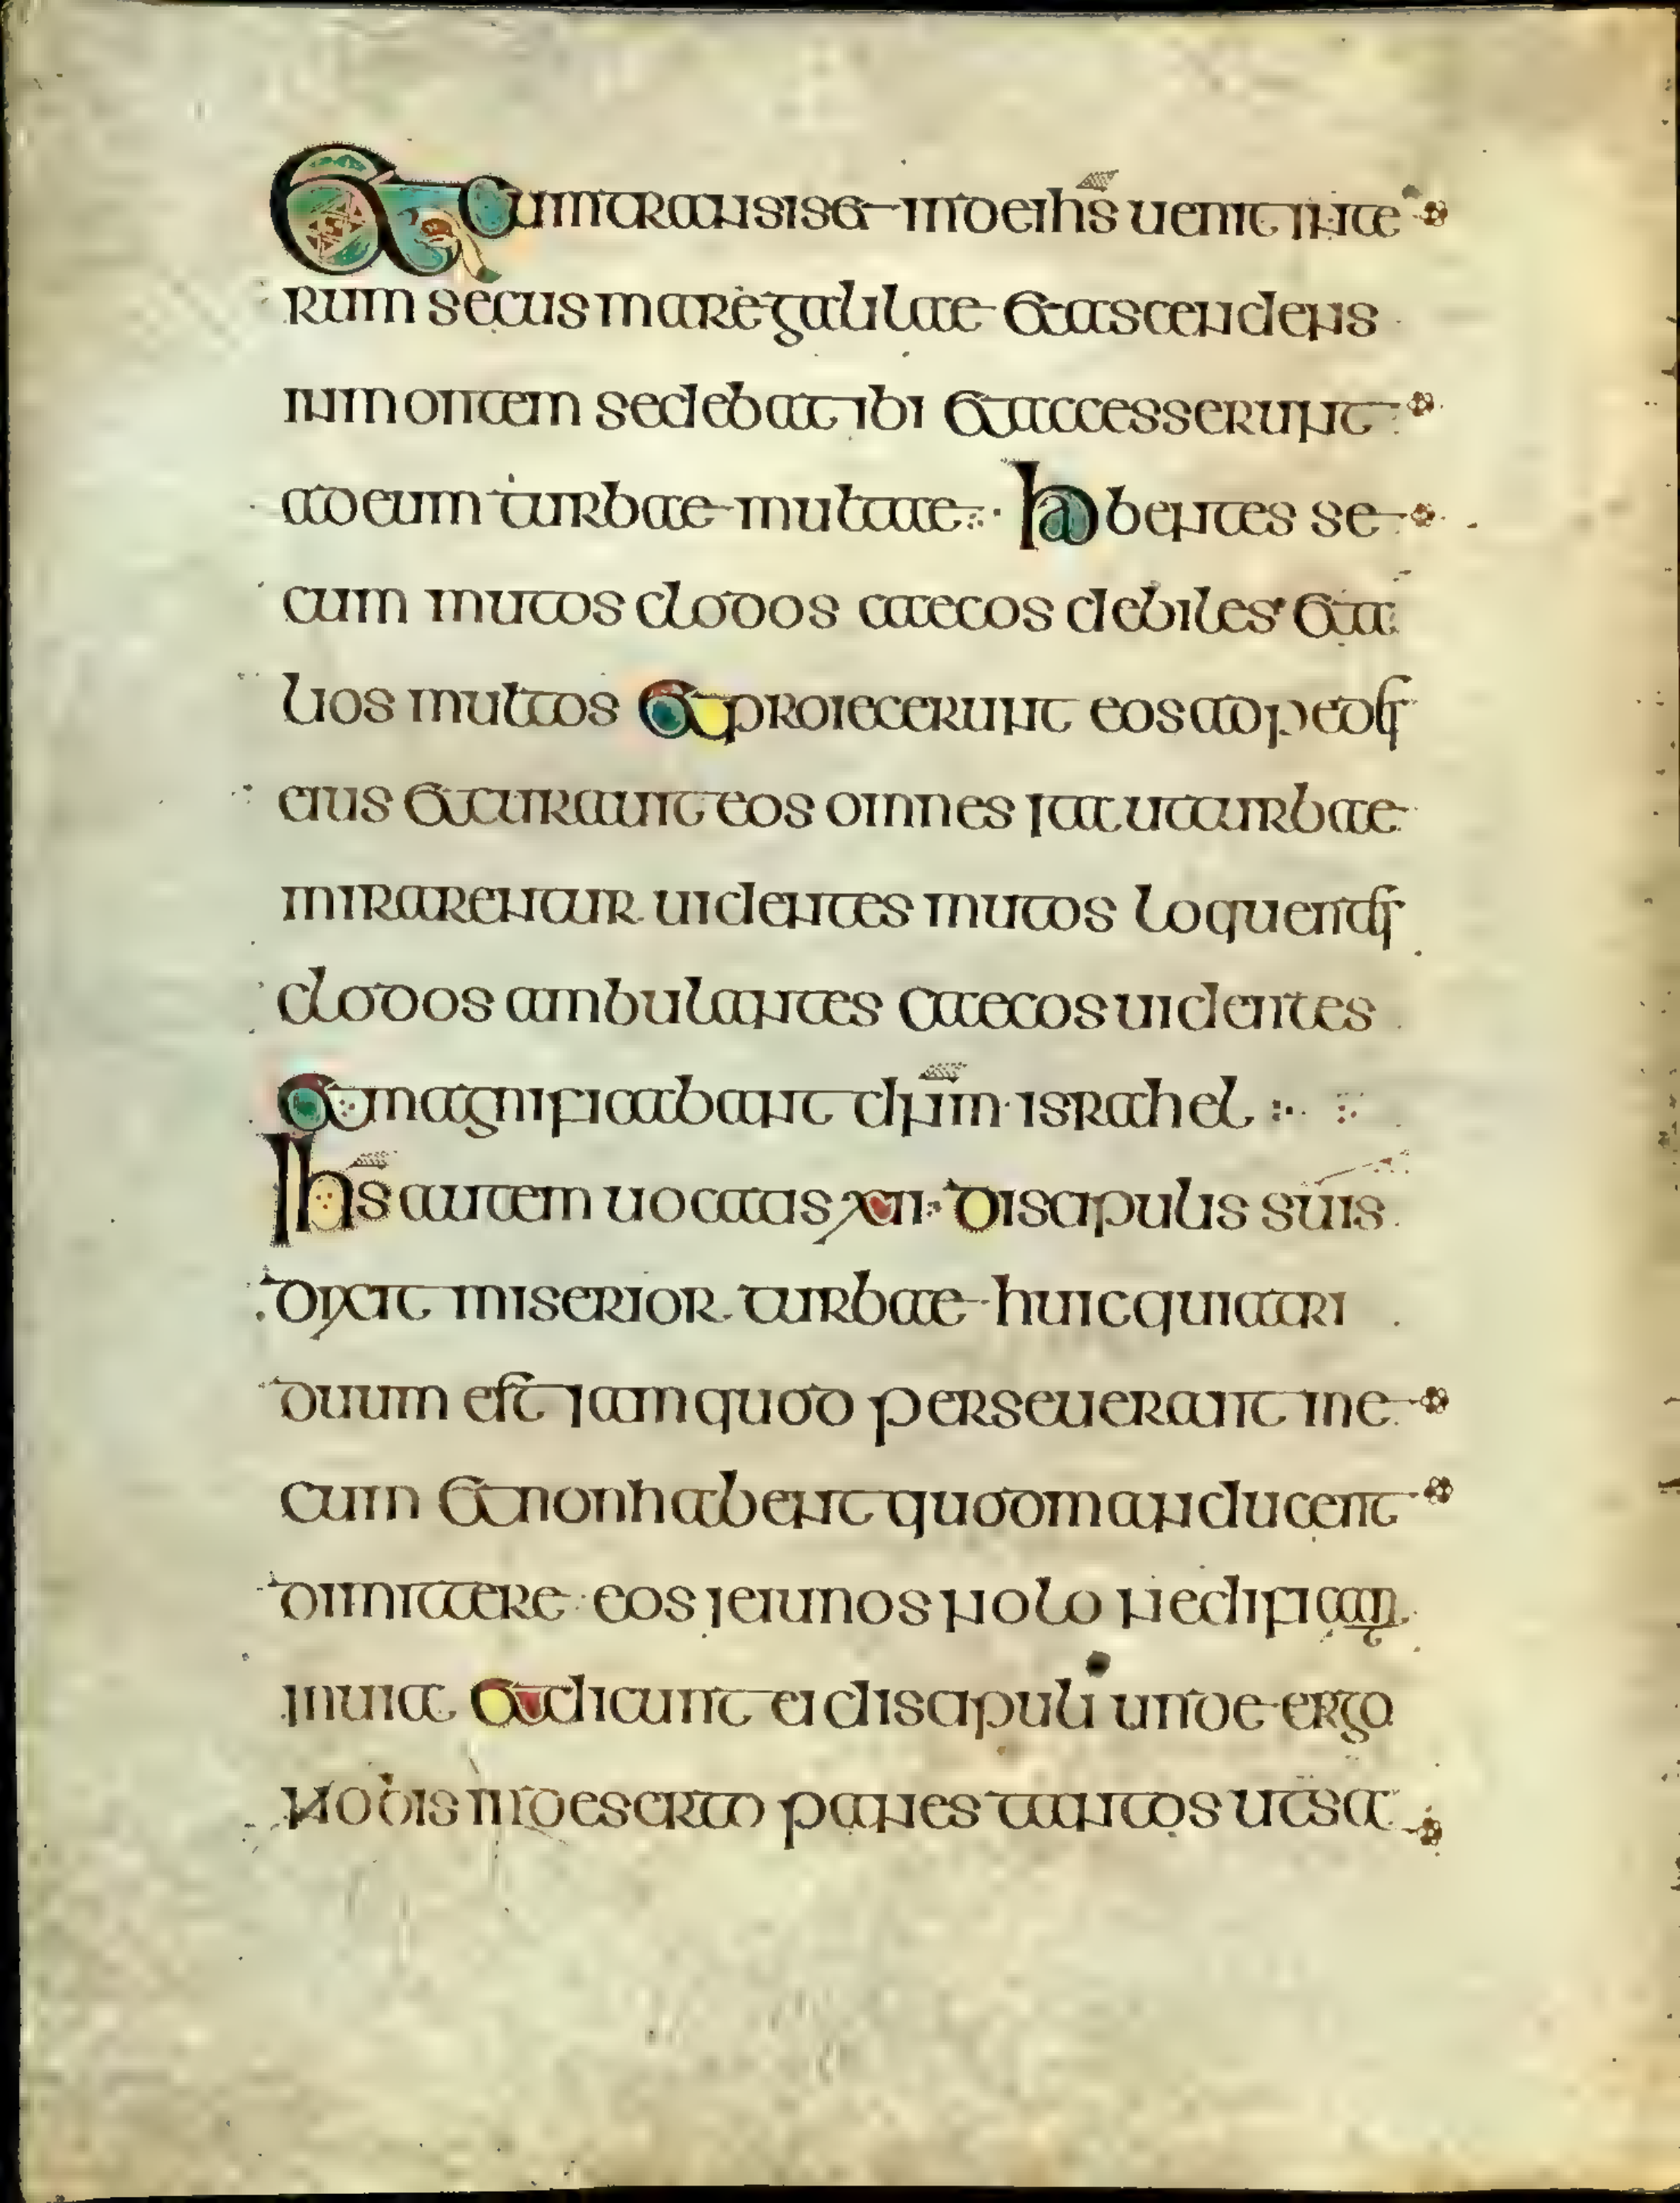 Et cum transisset inde ihs uenit ite
rum secus mare galilae et ascendens
in montem sedebat ibi et accesserunt
ad eum turbae multae Habentes se
cum mutos clodos caecos debiles et a
lios multos et proiecerunt eos ad pedes
eius et curauit eos omnes ita ut turbae
mirarentur uidentes mutos loquentes
clodos ambulantes caecos uidentes
et magnificabant dnm israhel
Ihs autem uocatis xii discipulis suis
dixit miserior turbae huic quia tri
duum est iam quod perseuerant me
cum et non habent quod manducent
dimittere eos ieiunos nolo ne dificiant
in uia et dicunt ei discipuli unde ergo
nobis in deserto panes tantos ut sa